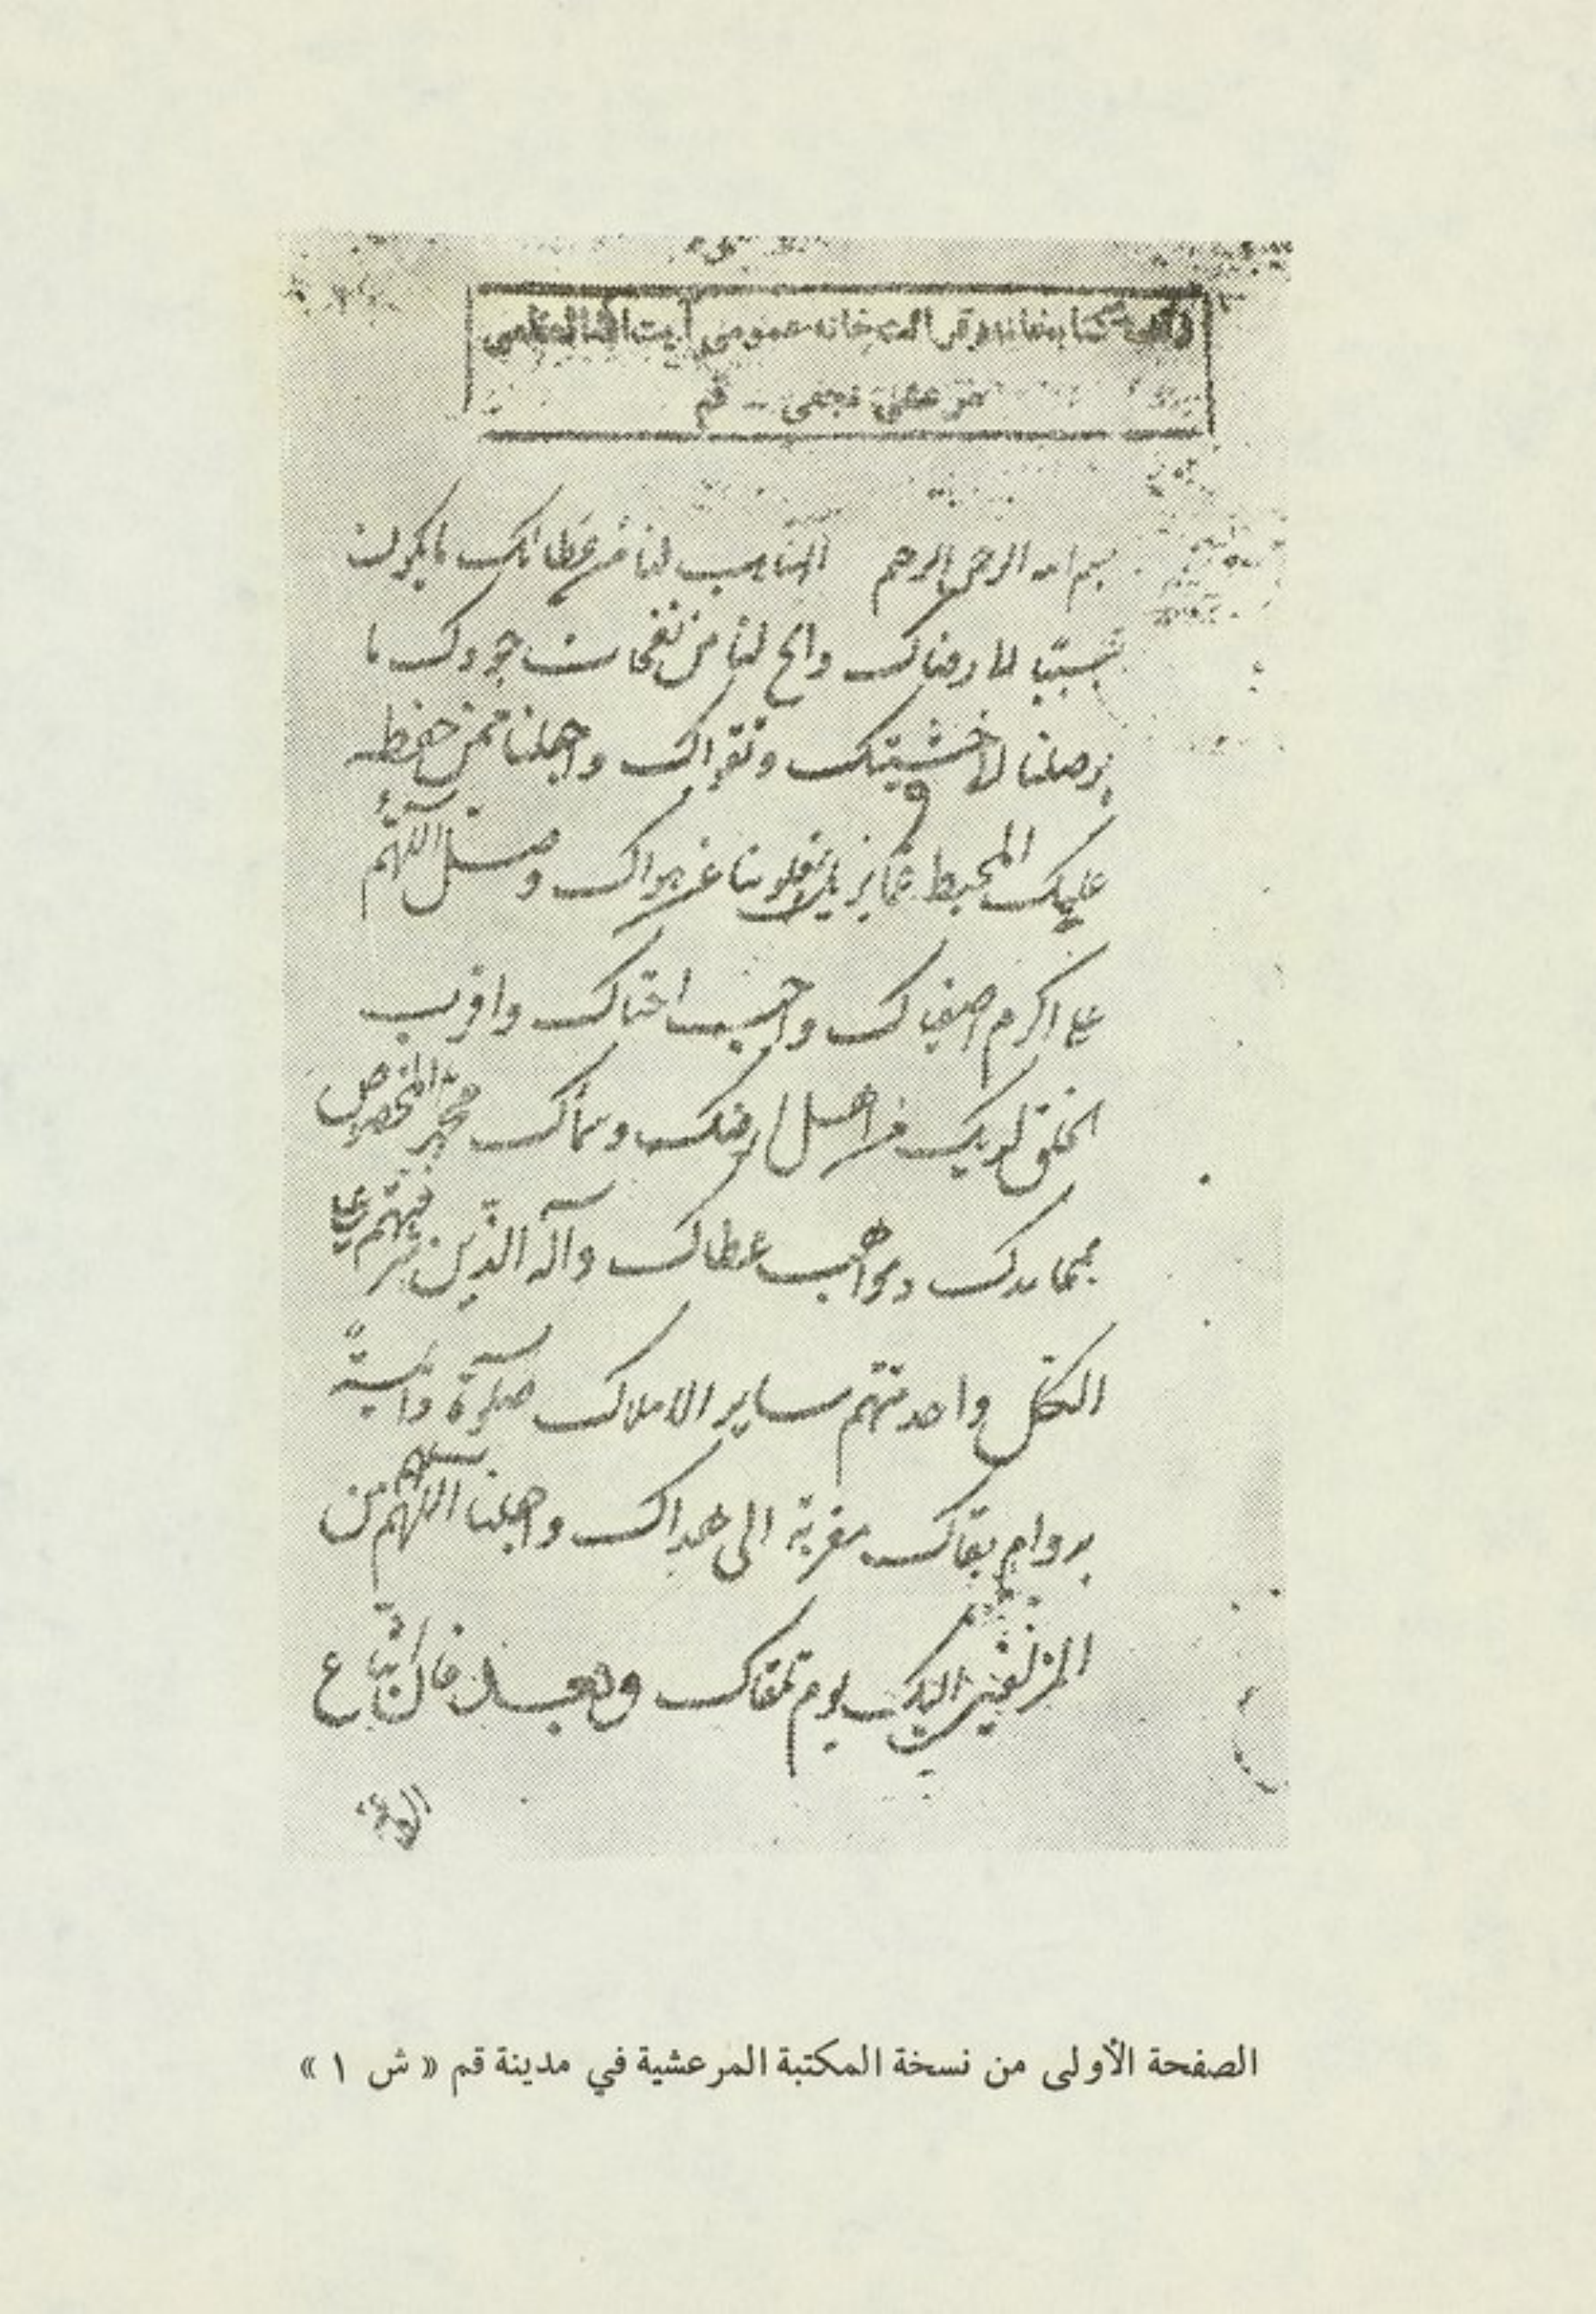 كتابخانه وقرائتخانه عمومى آيت الله العظمى
مرعشى نجفى - قم
بسم الله الرحمن الرحيم اللهم هب لنا من عطائك ما يكون
سببا لما رضاك وانح لنا من نفحات جودك ما
يوصلنا الى خشيتك وتقواك واجعلنا ممن حفظه
علمك المحيط عما يزيل قلوبنا عن هواك وصل اللهم
على اكرم اصفياك واحب احباك واقرب
الخلق لديك من اهل ارضك وسمائك محمد المخصوص
بمحامدك ومواهب عطاك وآله الذين شرفتهم على
الكل واحد منهم ساير الاملاك صلوة دائمة
بدوام بقاك مقربة الى هداك واجعلنا اللهم من
المزلفين اليك يوم نلقاك وبعد فان اتباع
الصفحة الأولى من نسخة المكتبة المرعشية في مدينة قم « ش ١ »